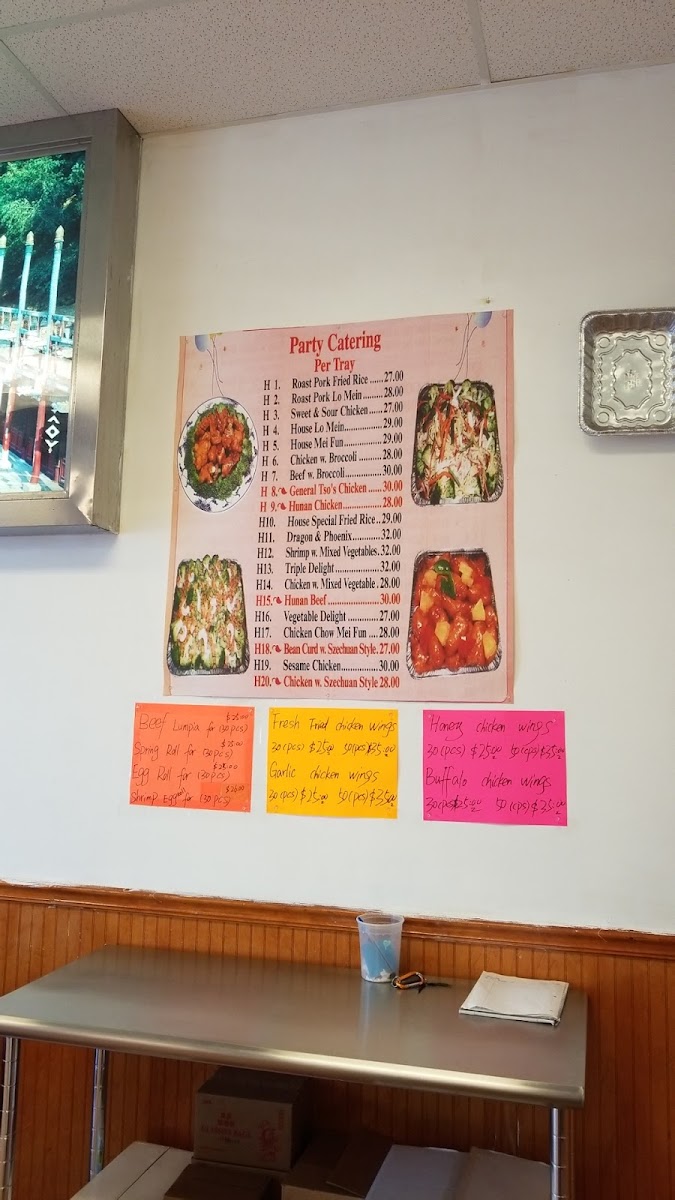 Party Catering
Per Tray
H 1. Roast Pork Fried Rice ......27.00
H 2. Roast Pork Lo Mein........28.00
H 3. Sweet & Sour Chicken........27.00
H 4. House Lo Mein..................29.00
H 5. House Mei Fun..................29.00
H 6. Chicken w. Broccoli .........28.00
H 7. Beef w. Broccoli...............30.00
H 8. General Tso's Chicken ......30.00
H 9. Hunan Chicken................28.00
H10. House Special Fried Rice..29.00
H11. Dragon & Phoenix...........32.00
H12. Shrimp w. Mixed Vegetables.32.00
H13. Triple Delight..................32.00
H14. Chicken w. Mixed Vegetable .28.00
H15. Hunan Beef .....................30.00
H16. Vegetable Delight .............27.00
H17. Chicken Chow Mei Fun ....28.00
H18. Bean Curd w. Szechuan Style.27.00
H19. Sesame Chicken...............30.00
H20. Chicken w. Szechuan Style 28.00
Beef Lumpia for (30pcs) $25.00
Spring Roll for (30pcs) $25.00
Egg Roll for (30pcs) $28.00
Shrimp Egg Roll for (30pcs)
Fresh Fried chicken wings
30(pcs) $25.00 50(pcs)$35.00
Garlic chicken wings
30(pcs) $25.00 50(pcs)$35.00
Honey chicken wings
30(pcs) $25.00 50(pcs)$35.00
Buffalo chicken wings
30(pcs)$25.00 50(pcs)$35.00